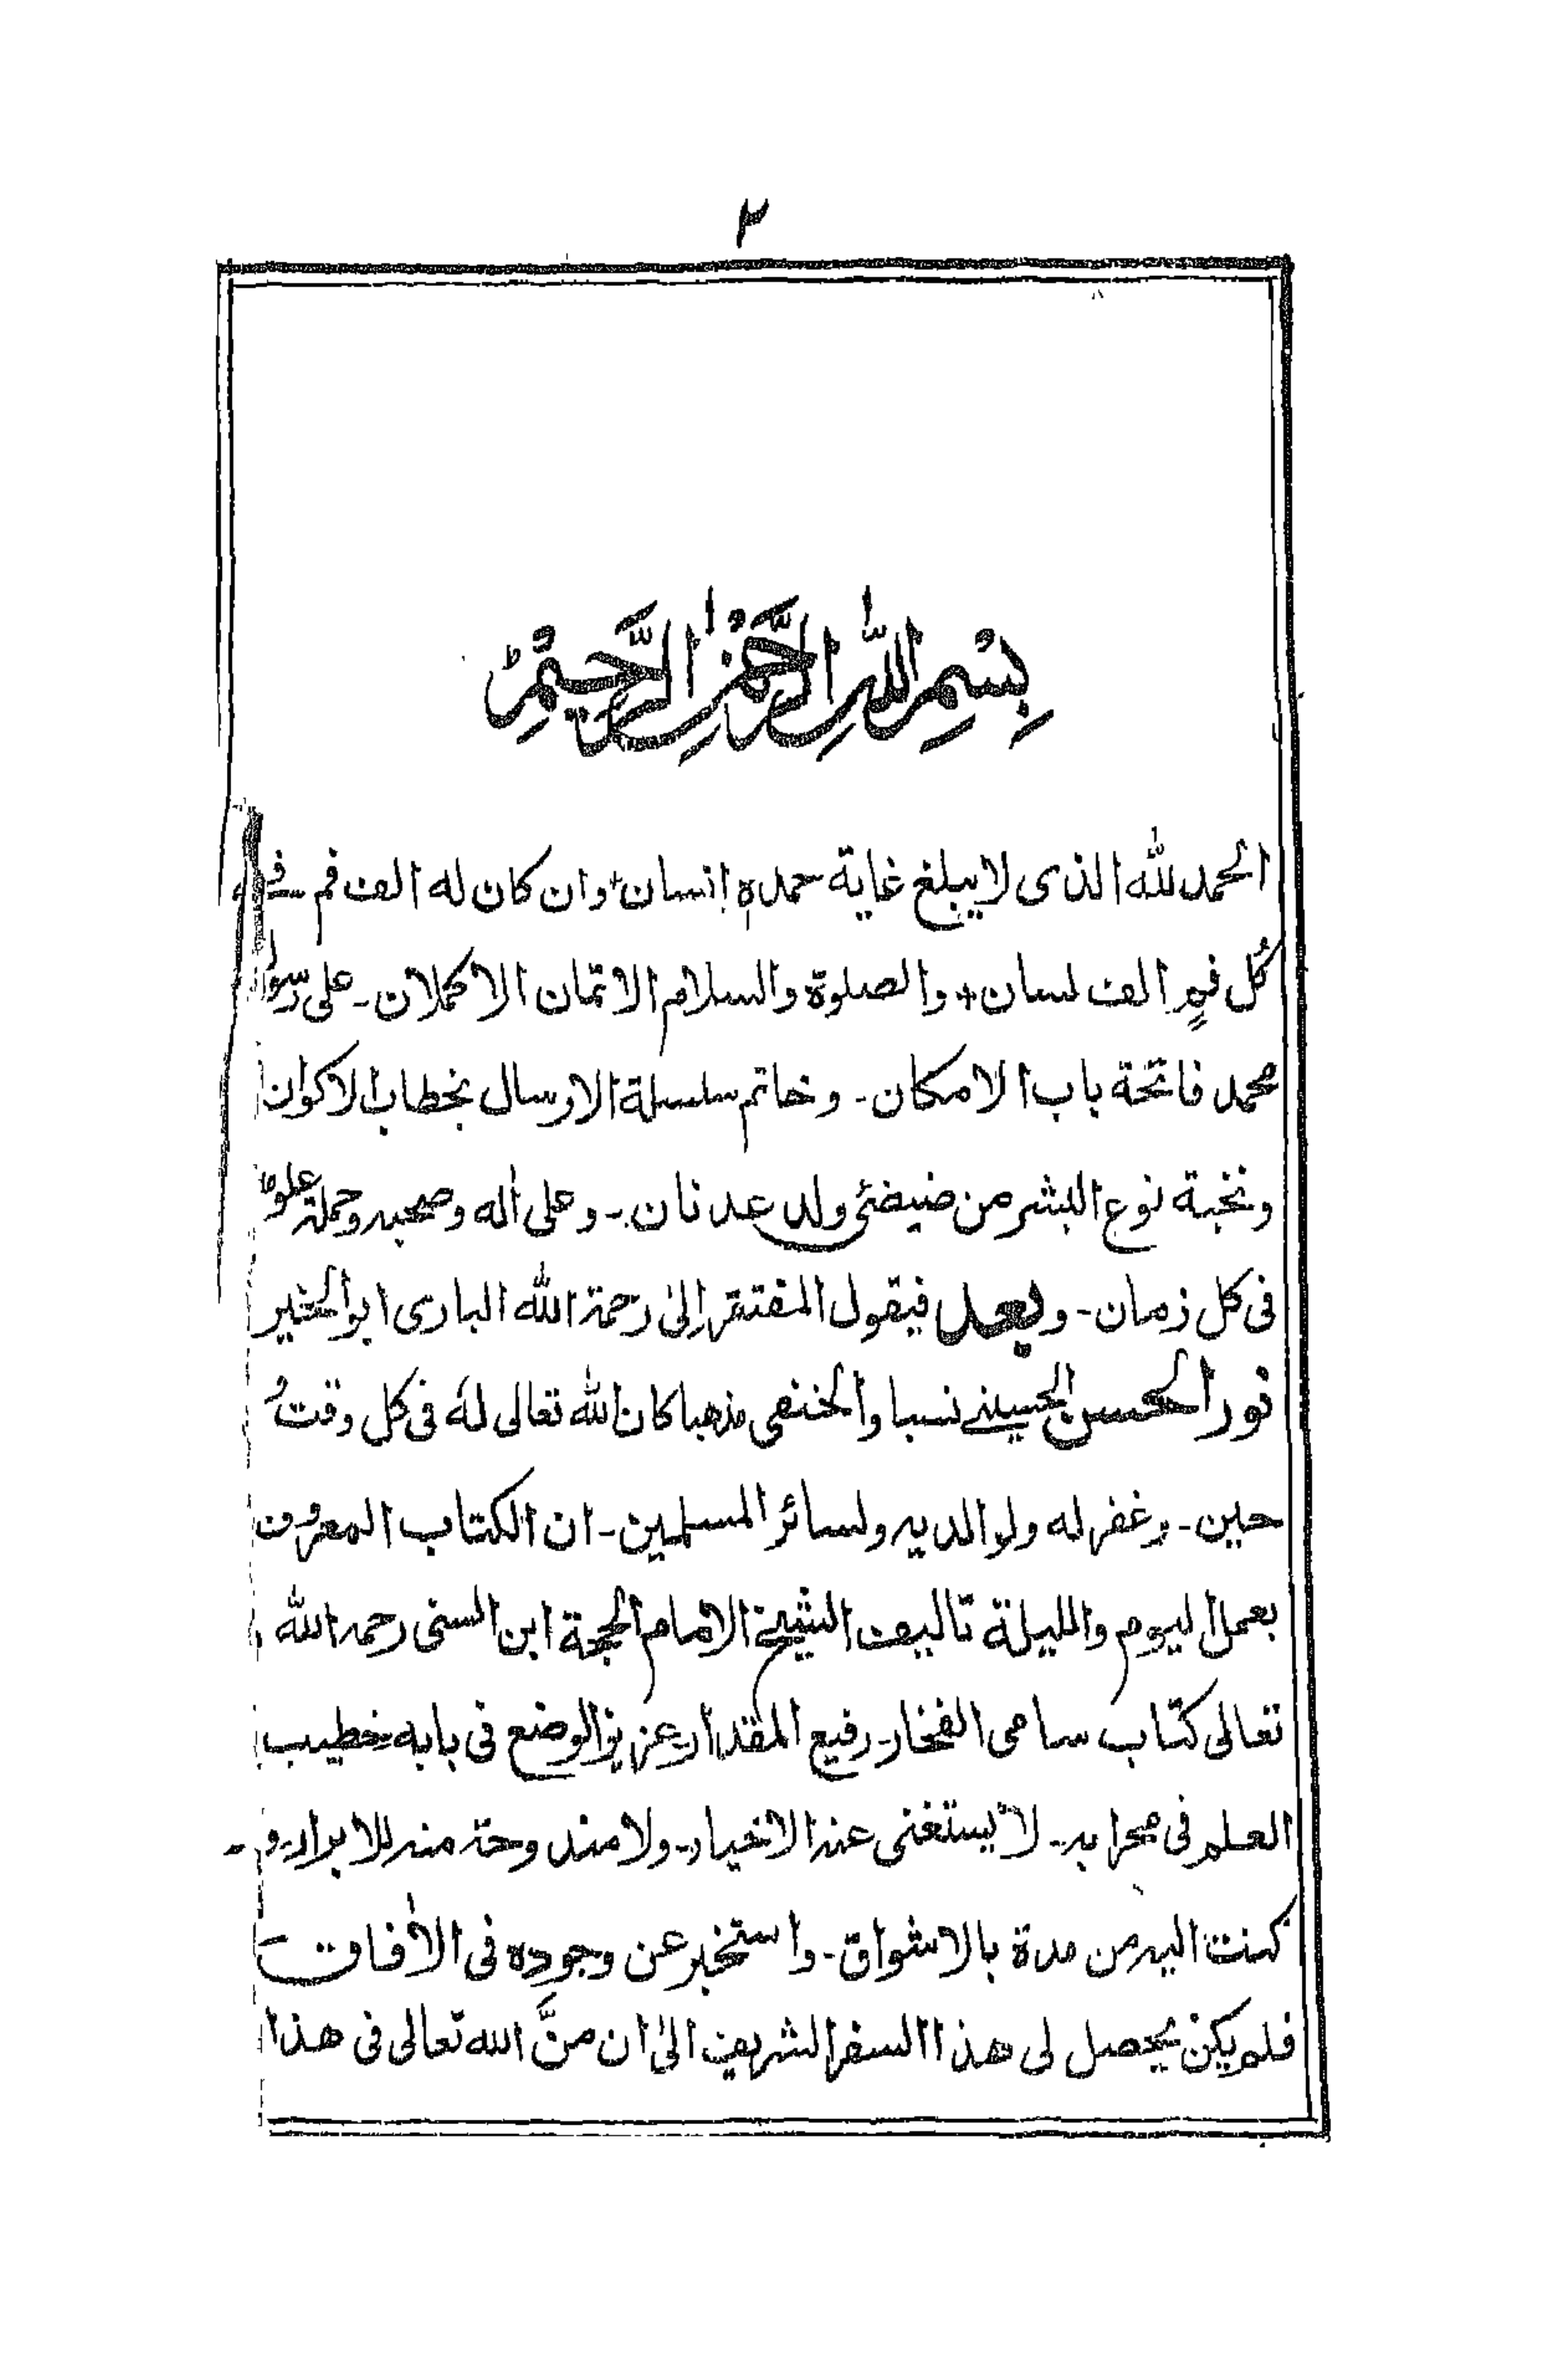 ٢
بِسْمِ اللهِ الرَّحْمٰنِ الرَّحِيْمِ
الحمد لله الذى لا يبلغ غاية حمده إنسان + وان كان له الف فم فى
كُل فمٍ الف لسان + والصلوة والسلام الاتمان الاكملان - على رسوله
محمد فاتحة باب الامكان - وخاتم سلسلة الارسال بخطاب الاكوان
ونخبة نوع البشر من ضيضئ ولد عدنان - وعلى اٰله وصحبه وحملة علومه
فى كل زمان - وبعد فيقول المفتقر إلىٰ رحمة الله البارى ابو الخير
نور الحسن الحسينى نسبا والحنفى مذهبا كان الله تعالى لهٗ فى كل وقت و
حين - وغفر له ولوالديه ولسائر المسلمين - ان الكتاب المعروف
بعمل اليوم والليلة تاليف الشيخ الامام الحجة ابن السنى رحمه الله
تعالى كتاب سامى الفخار - رفيع المقدار - عزيز الوضع فى بابه خطيب
العلم فى محرابه - لا يستغنى عنه الاخيار - ولا مندوحة منه للابرار - و
كنت اليه من مدة بالاشواق - واستخبر عن وجوده فى الاٰفاق -
فلم يكن يحصل لى هذا السفر الشريف الىٰ ان منَّ الله تعالى فى هذا